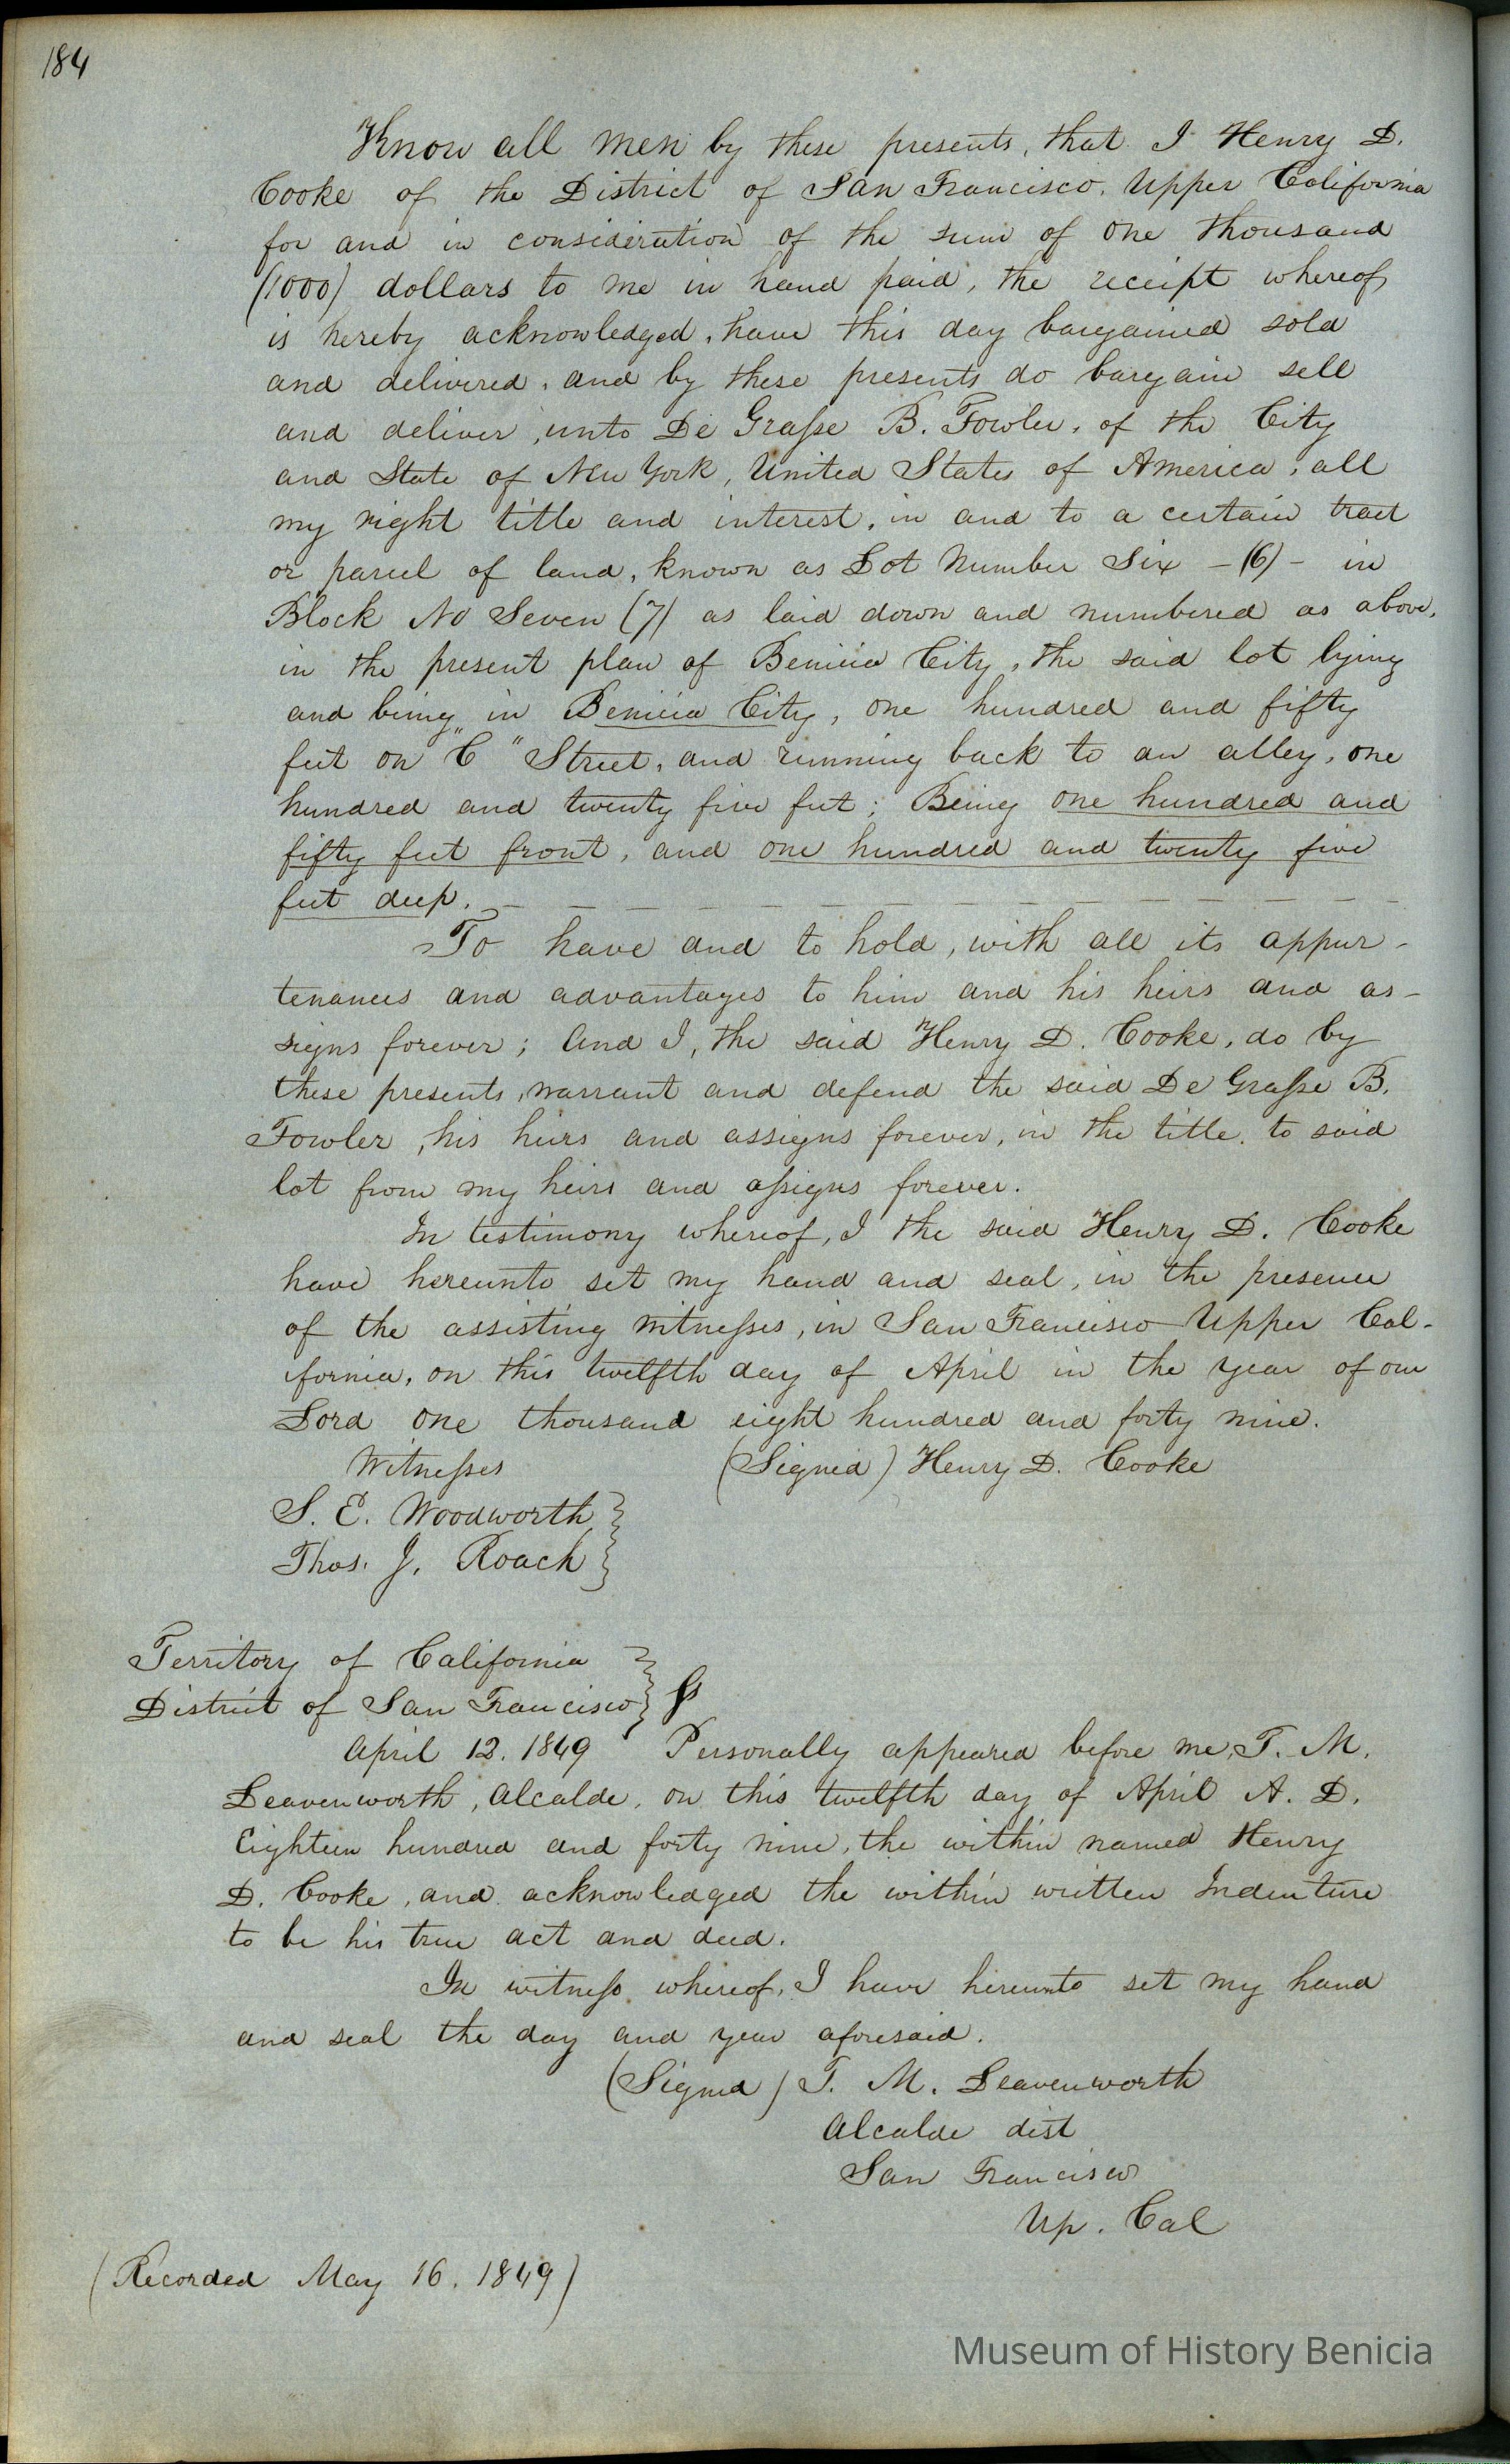 184
Know all men by these presents, that I Henry D.
Cooke of the District of San Francisco, Upper California
for and in consideration of the sum of one thousand
(1000) dollars to me in hand paid, the receipt whereof
is hereby acknowledged, have this day bargained sold
and delivered, and by these presents do bargain sell
and deliver, unto De Grasse B. Fowler, of the City
and State of New York, United States of America, all
my right title and interest, in and to a certain tract
or parcel of land, known as Lot Number Six - (6) - in
Block No Seven (7) as laid down and numbered as above,
in the present plan of Benicia City, the said lot lying
and being in Benicia City, one hundred and fifty
feet on "C" Street, and running back to an alley, one
hundred and twenty five feet; Being one hundred and
fifty feet front, and one hundred and twenty five
feet deep.
To have and to hold, with all its appur-
tenances and advantages to him and his heirs and as-
signs forever; And I, the said Henry D. Cooke, do by
these presents, warrant and defend the said De Grasse B.
Fowler, his heirs and assigns forever, in the title, to said
lot from my heirs and assigns forever.
In testimony whereof, I the said Henry D. Cooke
have hereunto set my hand and seal, in the presence
of the assisting witnesses, in San Francisco Upper Cal-
ifornia, on this twelfth day of April in the year of our
Lord one thousand eight hundred and forty nine.
Witnesses (Signed) Henry D. Cooke
S. E. Woodworth
Thos. J. Roach
Territory of California
District of San Francisco } ss
April 12. 1849 Personally appeared before me, T. M.
Leavenworth, Alcalde, on this twelfth day of April A. D.
Eighteen hundred and forty nine, the within named Henry
D. Cooke, and acknowledged the within written Indenture
to be his true act and deed.
In witness whereof, I have hereunto set my hand
and seal the day and year aforesaid.
(Signed) T. M. Leavenworth
Alcalde dist
San Francisco
Up. Cal
(Recorded May 16. 1849)
Museum of History Benicia